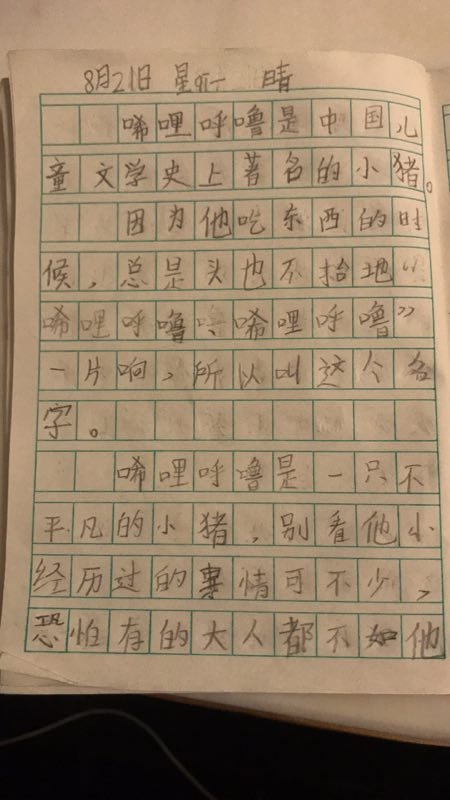 8月21日 星期一 晴
唏哩呼噜是中国儿
童文学史上著名的小猪。
因为他吃东西的时
候,总是头也不抬地“
唏哩呼噜、唏哩呼噜”
一片响,所以叫这个名
字。
唏哩呼噜是一只不
平凡的小猪,别看他小
经历过的事情可不少,
恐怕有的大人都不如他